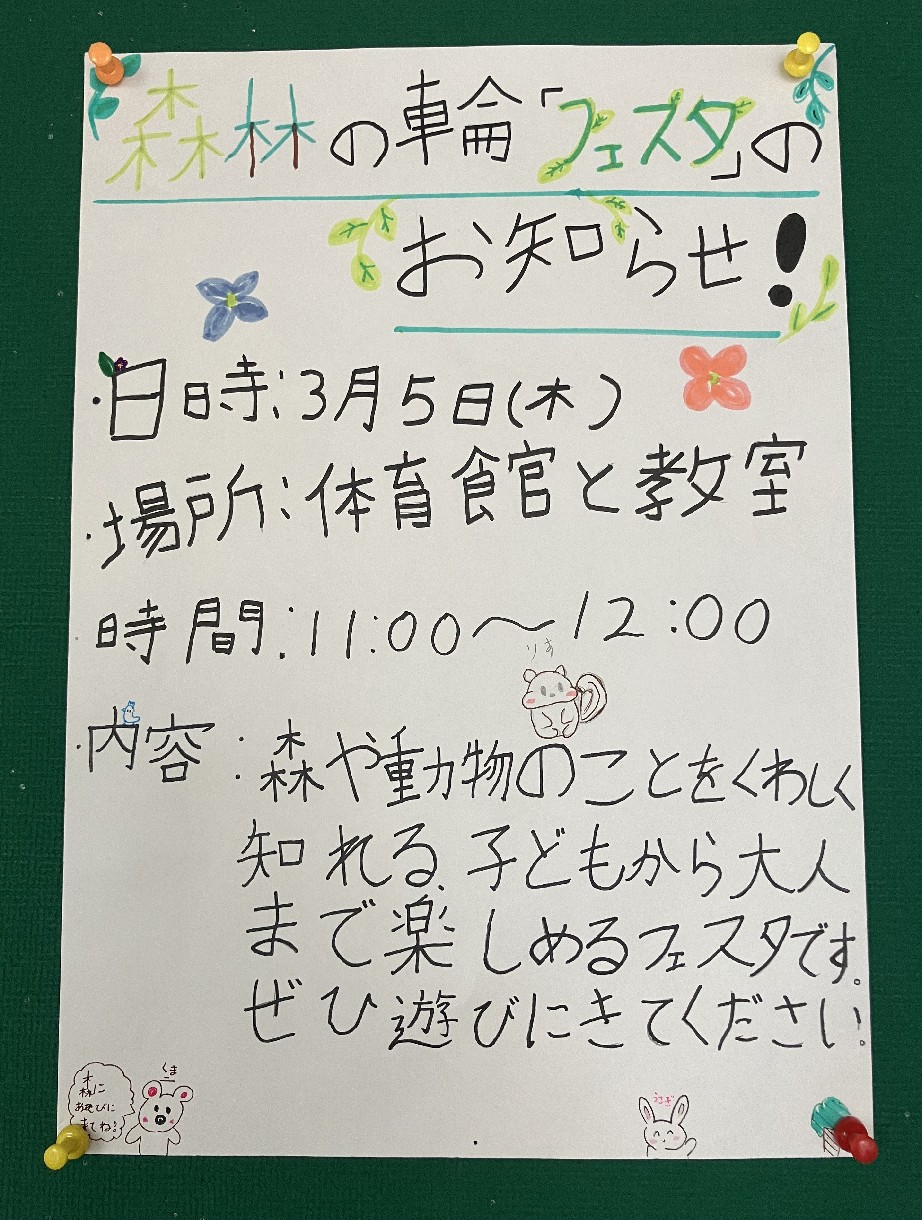 森林の輪「フェスタ」の
お知らせ!
・日時:3月5日(木)
・場所:体育食官と教室
時間:11:00〜12:00
りす
・内容:森や動物のことをくわしく
知れる、子どもから大人
まで楽しめるフェスタです。
ぜひ遊びにきてください。
くま
森に
あそびに
きてね!
うさぎ